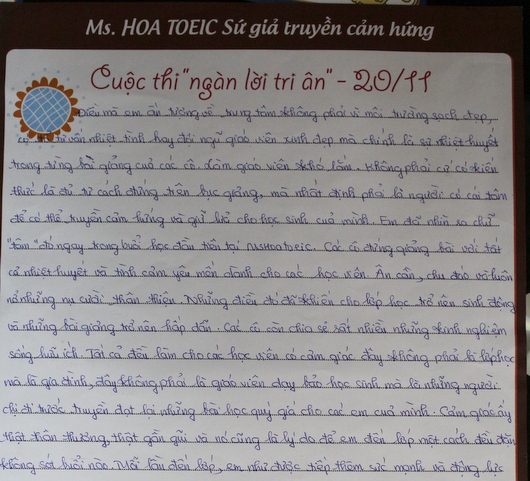 Ms. HOA TOEIC Sứ giả truyền cảm hứng
Cuộc thi "ngàn lời tri ân" - 20/11
Điều mà em ấn tượng về trung tâm không phải vì môi trường sạch đẹp,
cơ tư vấn nhiệt tình hay đội ngũ giáo viên xinh đẹp mà chính là sự nhiệt huyết
trong từng bài giảng của các cô. Làm giáo viên khó lắm. Không phải cứ có kiến
thức là đủ tư cách đứng trên bục giảng, mà nhất định phải là người có cái tâm
để có thể truyền cảm hứng và giữ lửa cho học sinh của mình. Em đã nhìn ra chữ
"tâm" đó ngay trong buổi học đầu tiên tại MsHoaToeic. Các cô đứng giảng bài với tất
cả nhiệt huyết và tình cảm yêu mến dành cho các học viên. Ân cần, chu đáo và luôn
nở những nụ cười thân thiện. Những điều đó đã khiến cho lớp học trở nên sinh động
và những bài giảng trở nên hấp dẫn. Các cô còn chia sẻ rất nhiều những kinh nghiệm
sống hữu ích. Tất cả đều làm cho các học viên có cảm giác đây không phải là lớp học
mà là gia đình, đây không phải là giáo viên dạy bảo học sinh mà là những người
chị đi trước truyền đạt lại những bài học quý giá cho các em của mình. Cảm giác ấy
thật thân thương, thật gần gũi và nó cũng là lý do để em đến lớp một cách đều đặn
không sót buổi nào. Mỗi lần đến lớp, em như được tiếp thêm sức mạnh và động lực